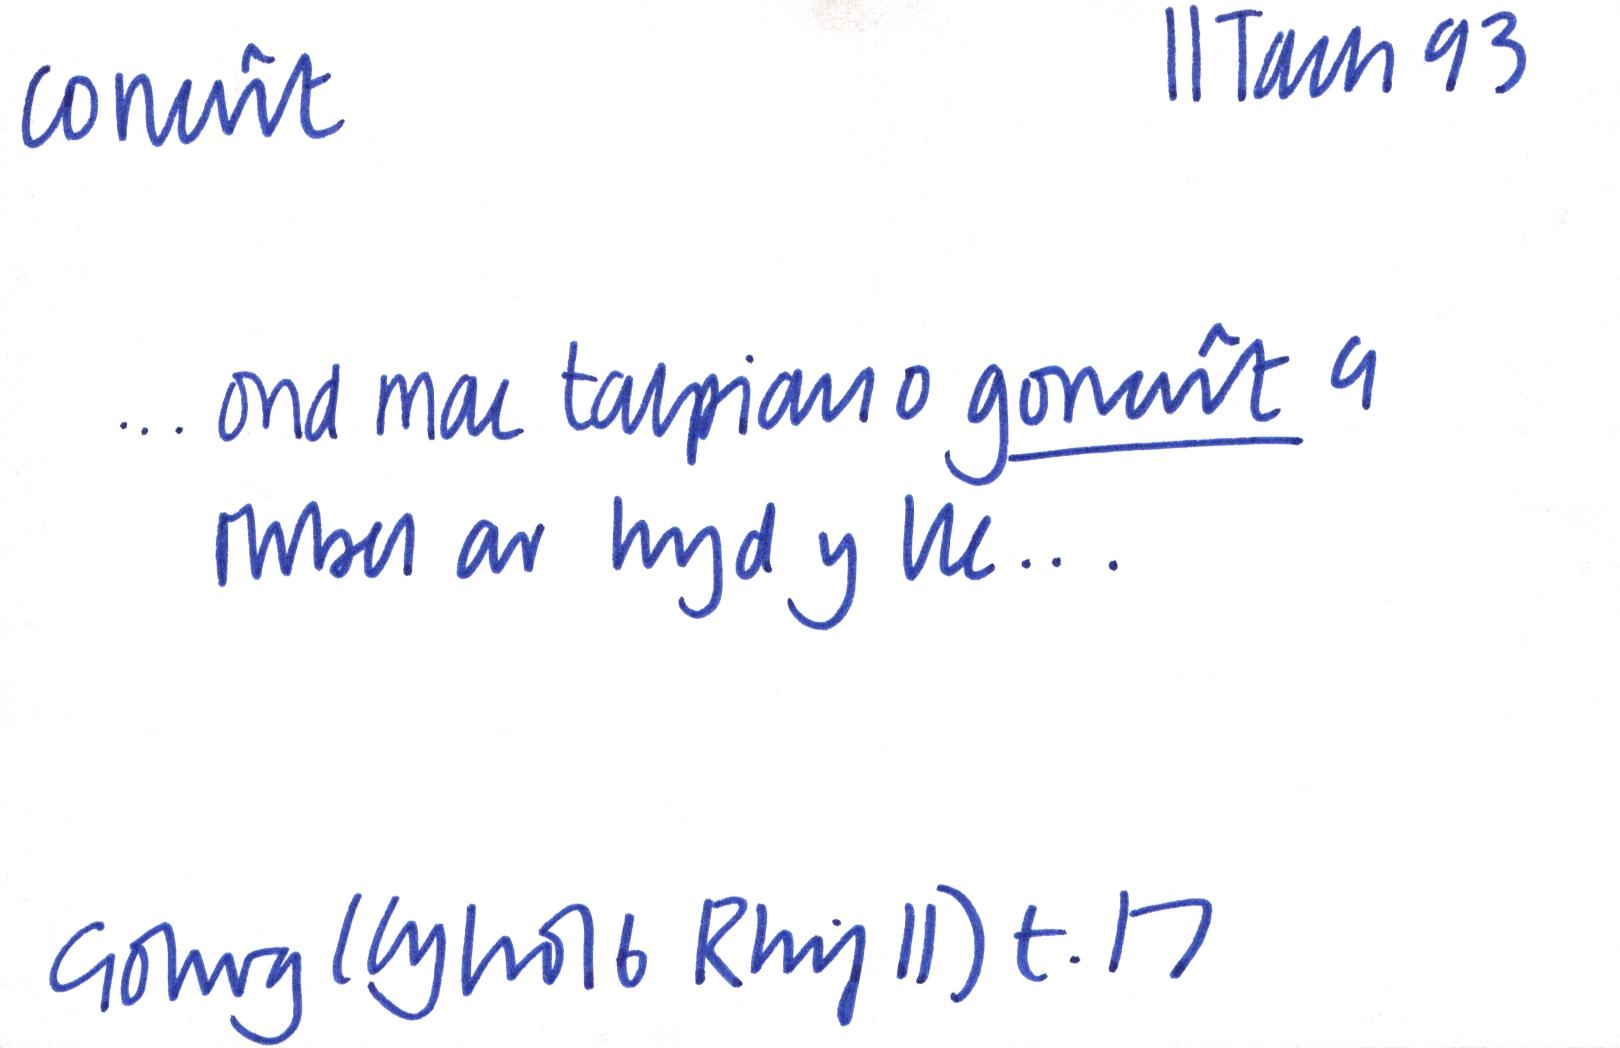 concrît 11 Tach 93
... ond mae talpiau o goncrît a
rwbel ar hyd y lle....
Golwg (Cyfrol 6 Rhif 11) t. 17